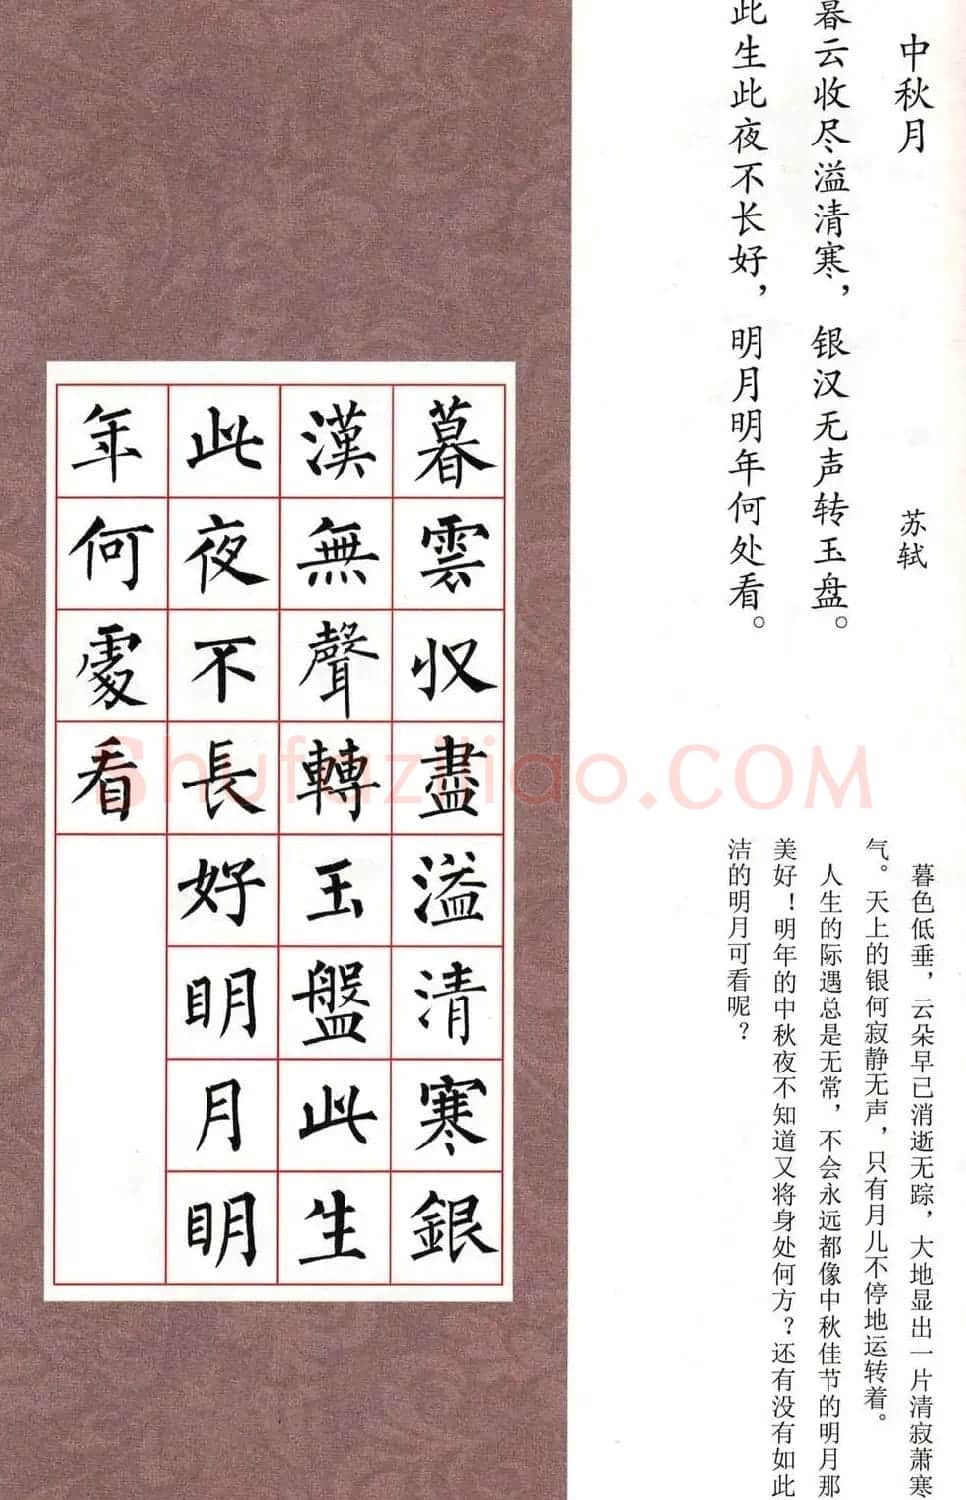 中秋月
苏轼
暮云收尽溢清寒，银汉无声转玉盘。
此生此夜不长好，明月明年何处看。
暮色低垂，云朵早已消逝无踪，大地显出一片清寂萧寒
气。天上的银何寂静无声，只有月儿不停地运转着。
人生的际遇总是无常，不会永远都像中秋佳节的明月那
美好！明年的中秋夜不知道又将身处何方？还有没有如此
洁的明月可看呢？
暮雲収盡溢清寒銀
漢無聲轉玉盤此生
此夜不長好明月明
年何處看
Shufaziliao.COM